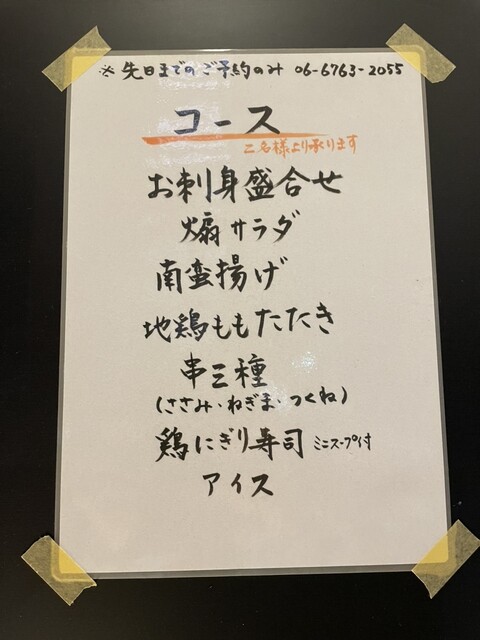 ※先日までのご予約のみ 06-6763-2055
コース
二名様より承ります
お刺身盛合せ
煽サラダ
南蛮揚げ
地鶏ももたたき
串三種
(ささみ・ねぎま・つくね)
鶏にぎり寿司 ミニスープ付
アイス